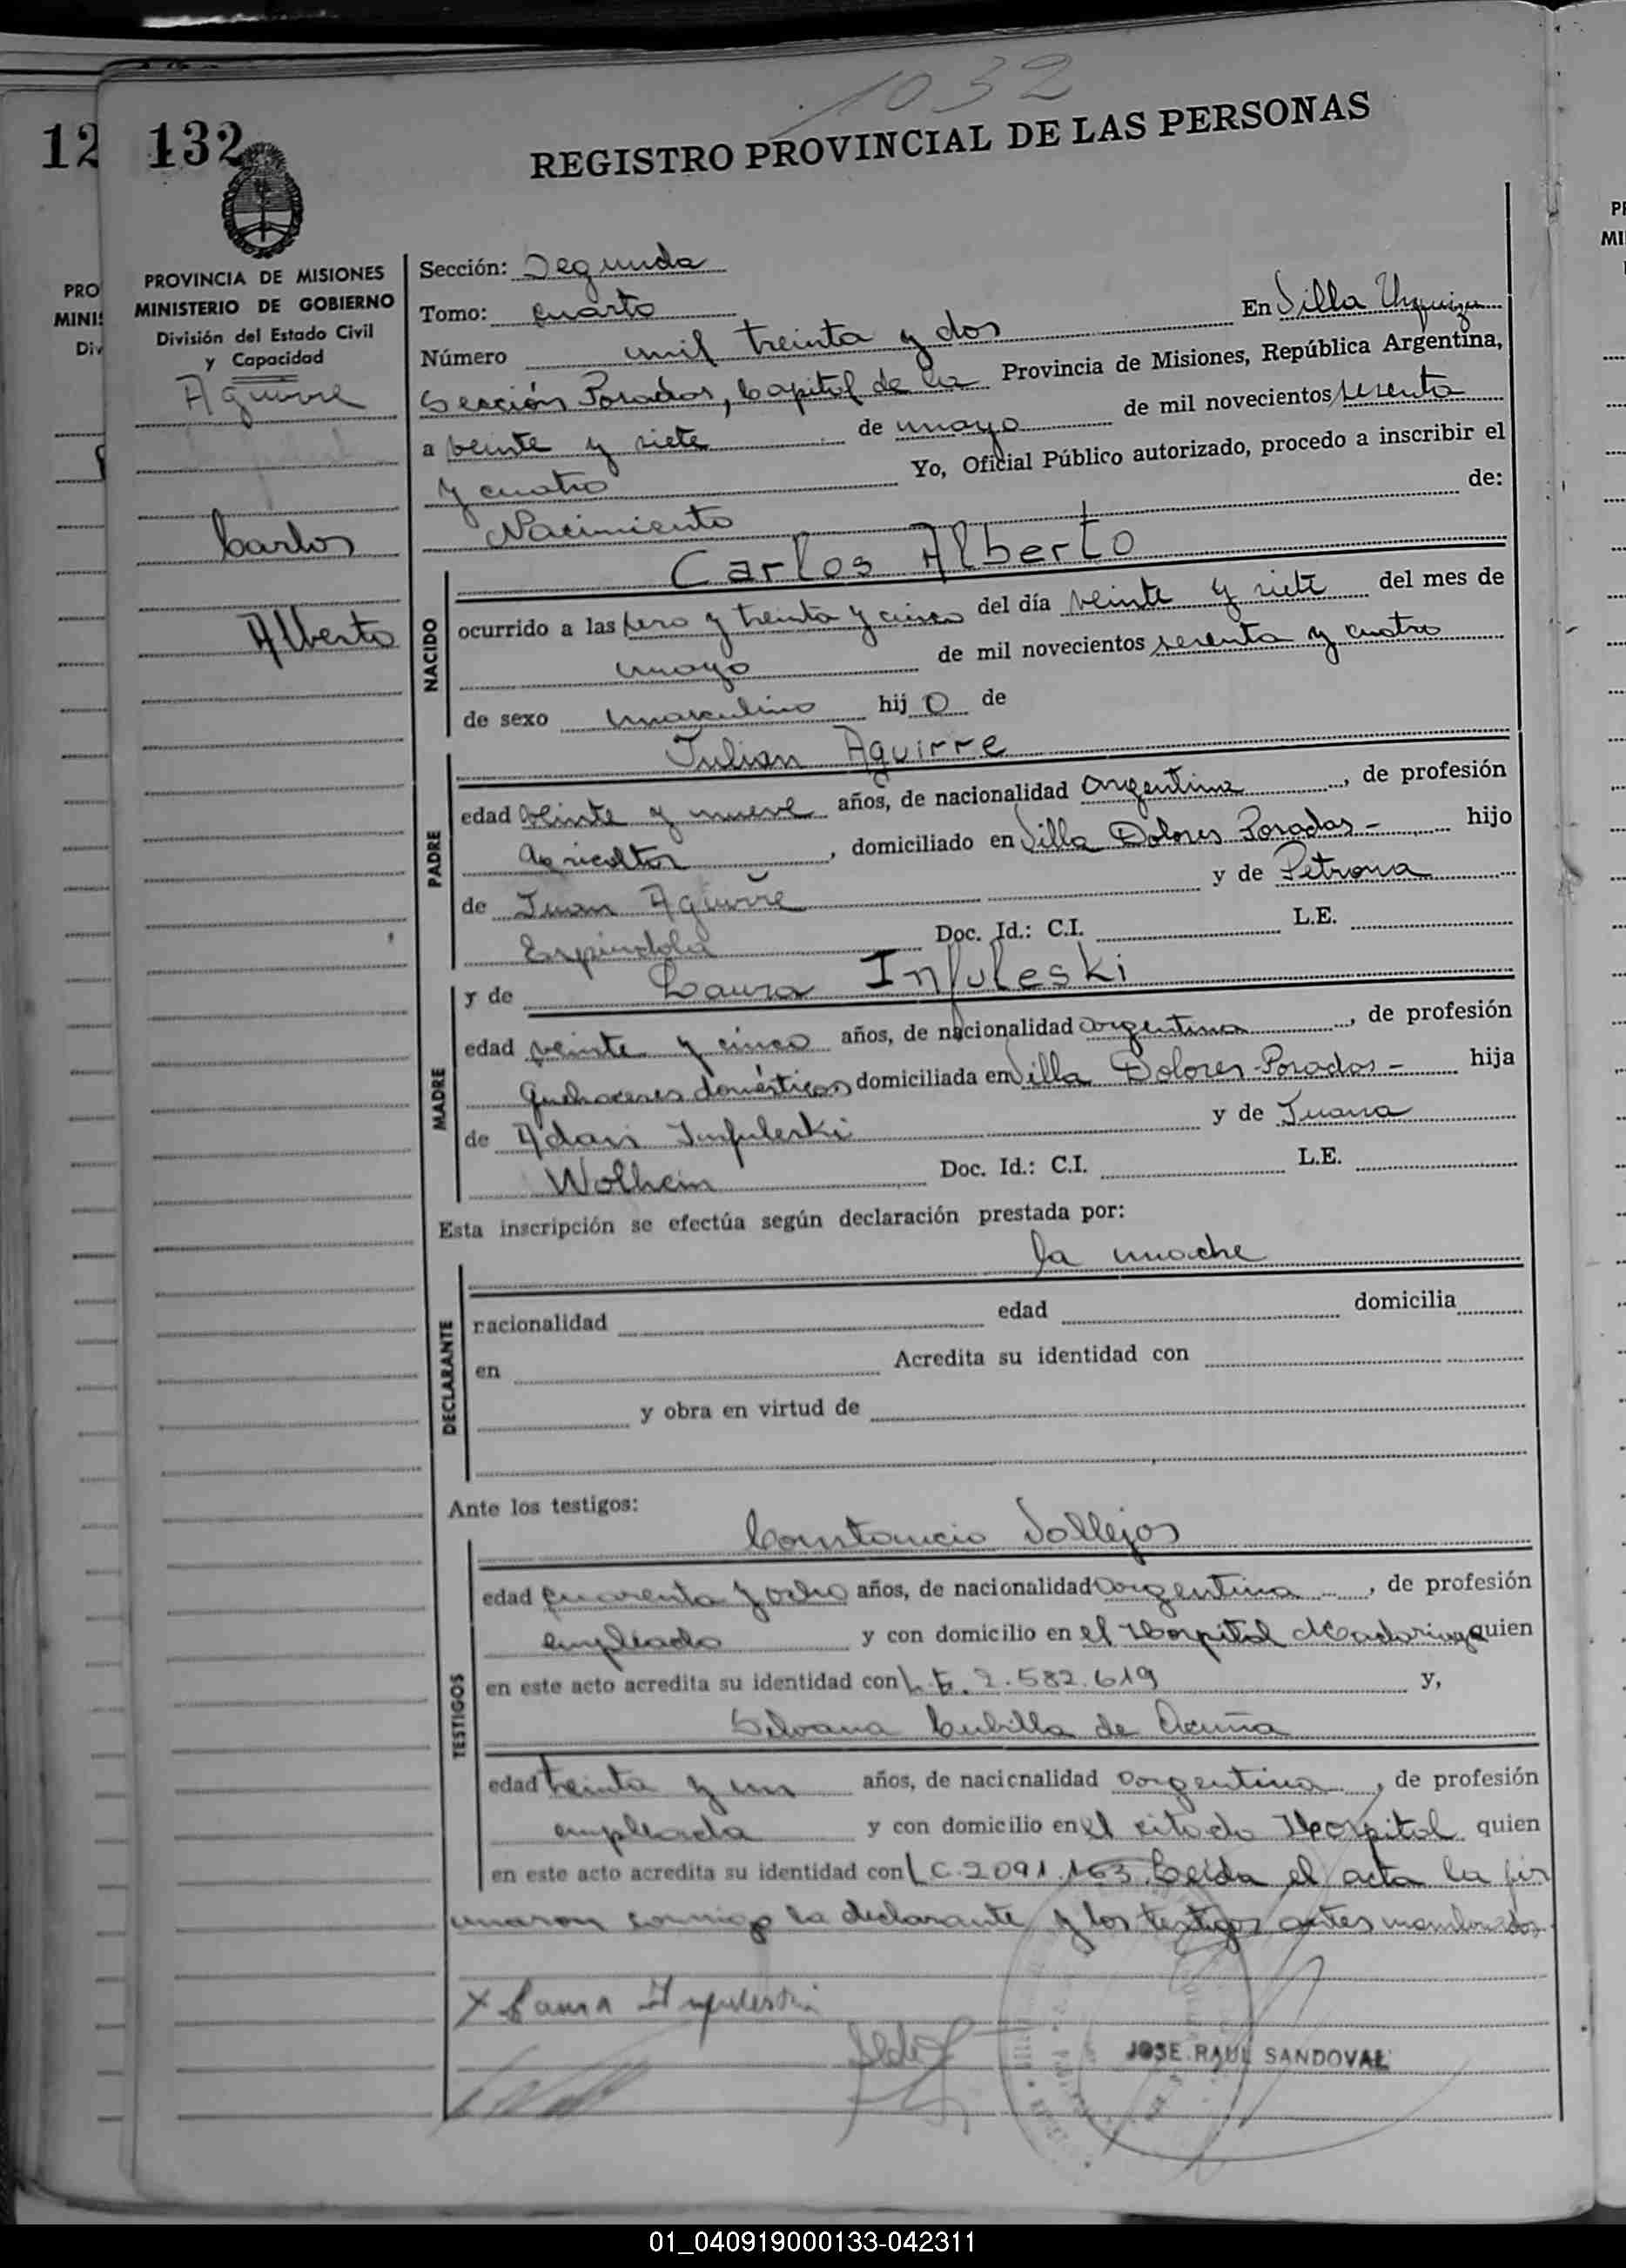 1032
12
132
REGISTRO PROVINCIAL DE LAS PERSONAS
PROVINCIA DE MISIONES
MINISTERIO DE GOBIERNO
División del Estado Civil
y Capacidad
Aguirre
Carlos
Alberto
Sección: Segunda
Tomo: cuarto
Número mil treinta y dos En Villa Urquiza
Sección Posadas, Capital de la Provincia de Misiones, República Argentina,
a veinte y siete de mayo de mil novecientos sesenta
y cuatro Yo, Oficial Público autorizado, procedo a inscribir el
Nacimiento de:
Carlos Alberto
NACIDO
ocurrido a las cero y treinta y cinco del día veinte y siete del mes de
mayo de mil novecientos sesenta y cuatro
de sexo masculino hij o de
Julian Aguirre
PADRE
edad veinte y nueve años, de nacionalidad argentina, de profesión
agricultor, domiciliado en Villa Dolores Posadas - hijo
de Juan Aguirre y de Petrona
Espindola Doc. Id.: C.I. L.E.
y de Laura Infuleski
MADRE
edad veinte y cinco años, de nacionalidad argentina, de profesión
quehaceres domésticos domiciliada en Villa Dolores-Posadas - hija
de Adan Infuleski y de Juana
Wolhein Doc. Id.: C.I. L.E.
Esta inscripción se efectúa según declaración prestada por:
la madre
DECLARANTE
nacionalidad edad domicilia
en Acredita su identidad con
y obra en virtud de
Ante los testigos:
Constancio Vallejos
TESTIGOS
edad cuarenta y ocho años, de nacionalidad argentina, de profesión
empleado y con domicilio en el Hospital Madariaga quien
en este acto acredita su identidad con L.E. 2.582.619 y,
Silvana Cubilla de Acuña
edad treinta y un años, de nacionalidad argentina, de profesión
empleada y con domicilio en el citado Hospital quien
en este acto acredita su identidad con L C 2091.163. Leída el acta la fir
maron conmigo la declarante y los testigos antes nombrados.
X Laura Infuleski
JOSE RAUL SANDOVAL
01_040919000133-042311